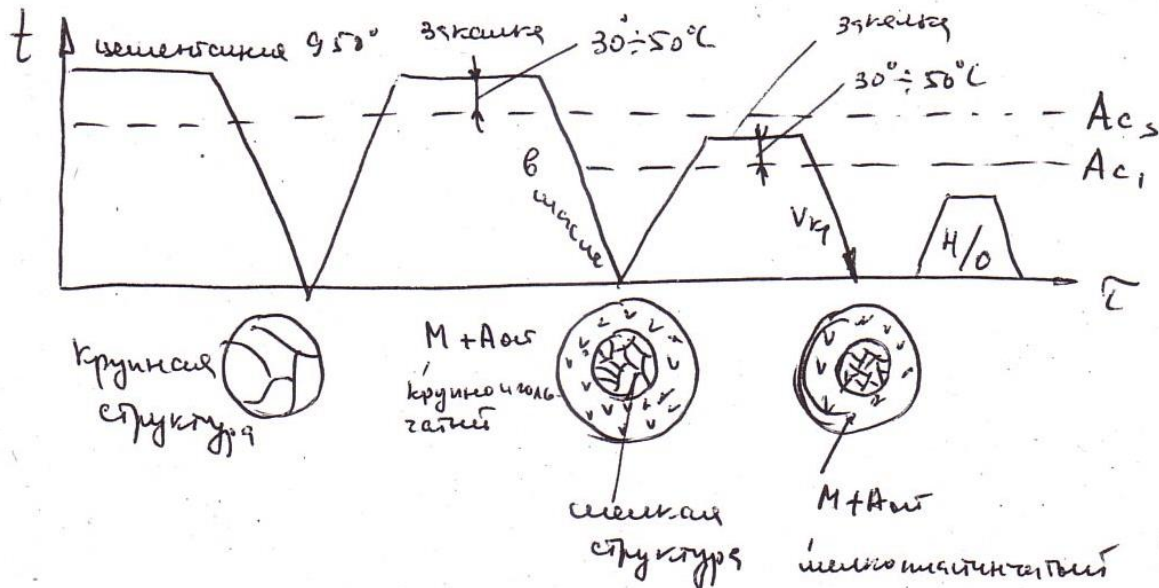 t
цементация 950°
закалка
30°÷50°C
закалка
30°÷50°C
Ac₃
Ac₁
в
масле
Vкр
Н/О
τ
Крупная
структура
М + Аост
крупноиголь-
чатый
мелкая
структура
М + Аост
мелкопластинчатый